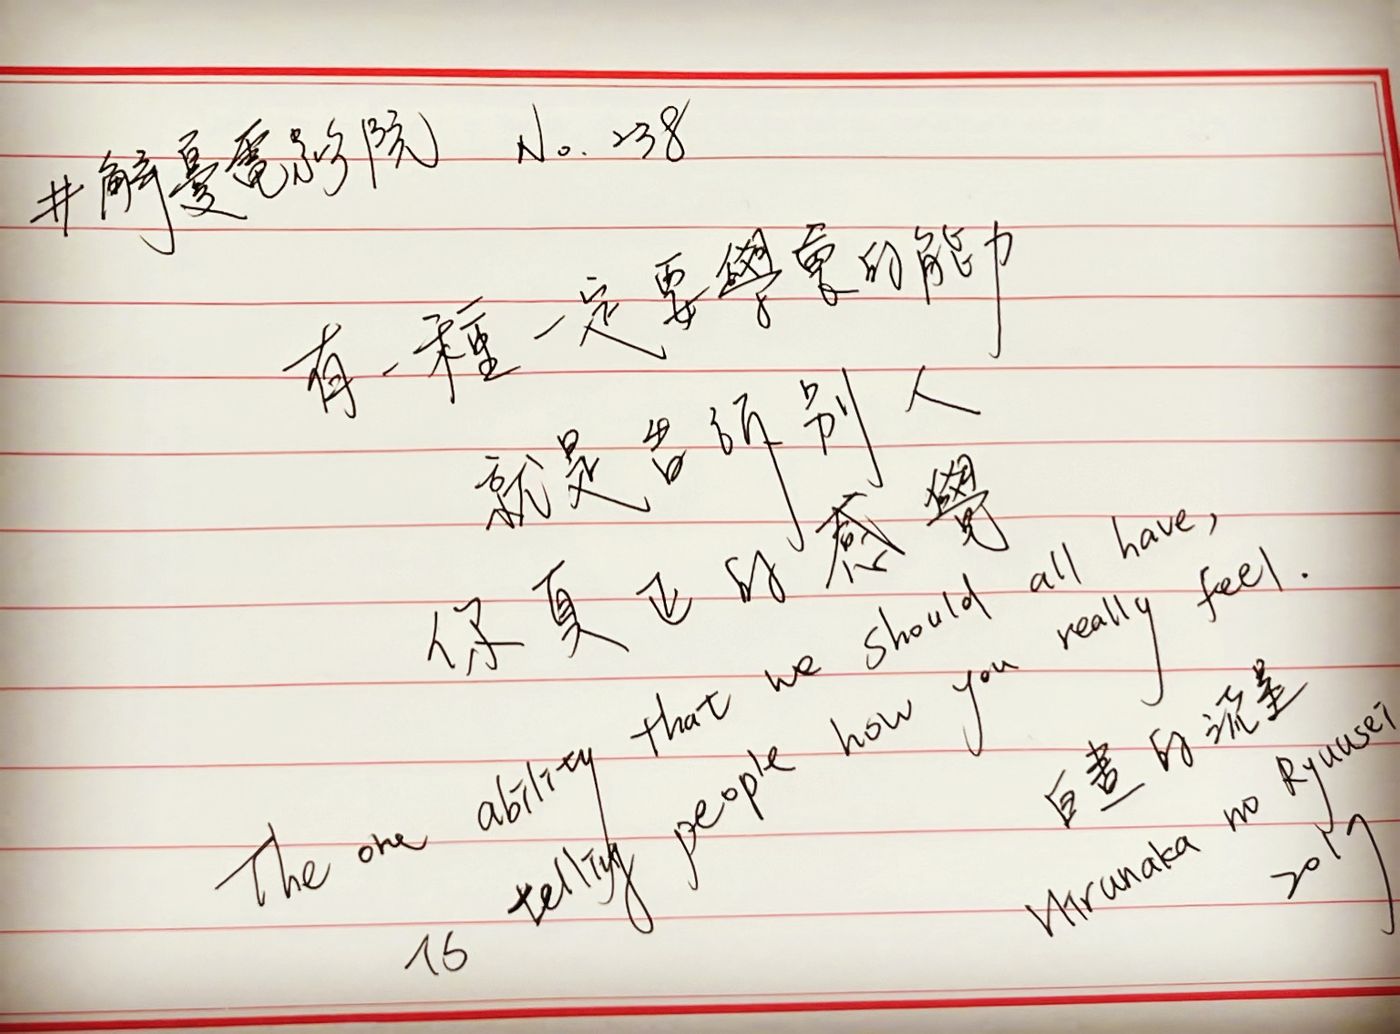 #解憂電影院 No. 238
有一種一定要學會的能力
就是告訴別人
你真正的感覺
The one ability that we should all have,
is telling people how you really feel.
白晝的流星
Hirunaka no Ryuusei
2017